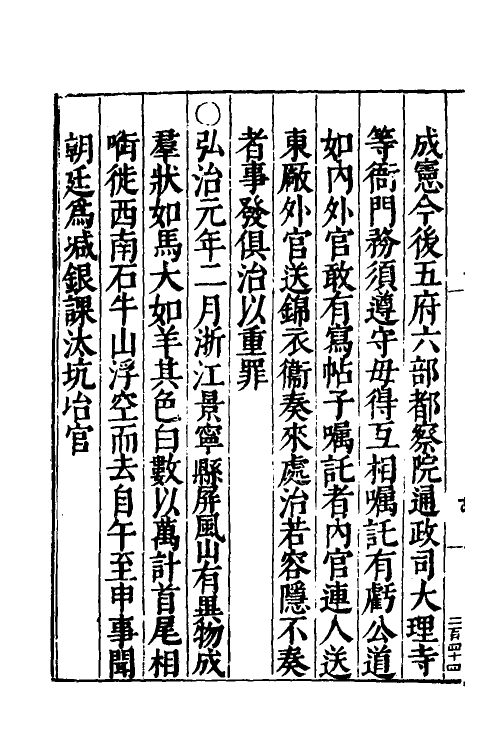 成憲今後五府六部都察院通政司大理寺
等衙門務須遵守毋得互相囑託有虧公道
如內外官敢有寫帖子囑託者內官連人送
東厰外官送錦衣衞奏來處治若容隱不奏
者事發俱治以重罪
○弘治元年二月浙江景寧縣屏風山有異物成
羣狀如馬大如羊其色白數以萬計首尾相
啣從西南石牛山浮空而去自午至申事聞
朝廷爲减銀課汰坑冶官
二百四十四